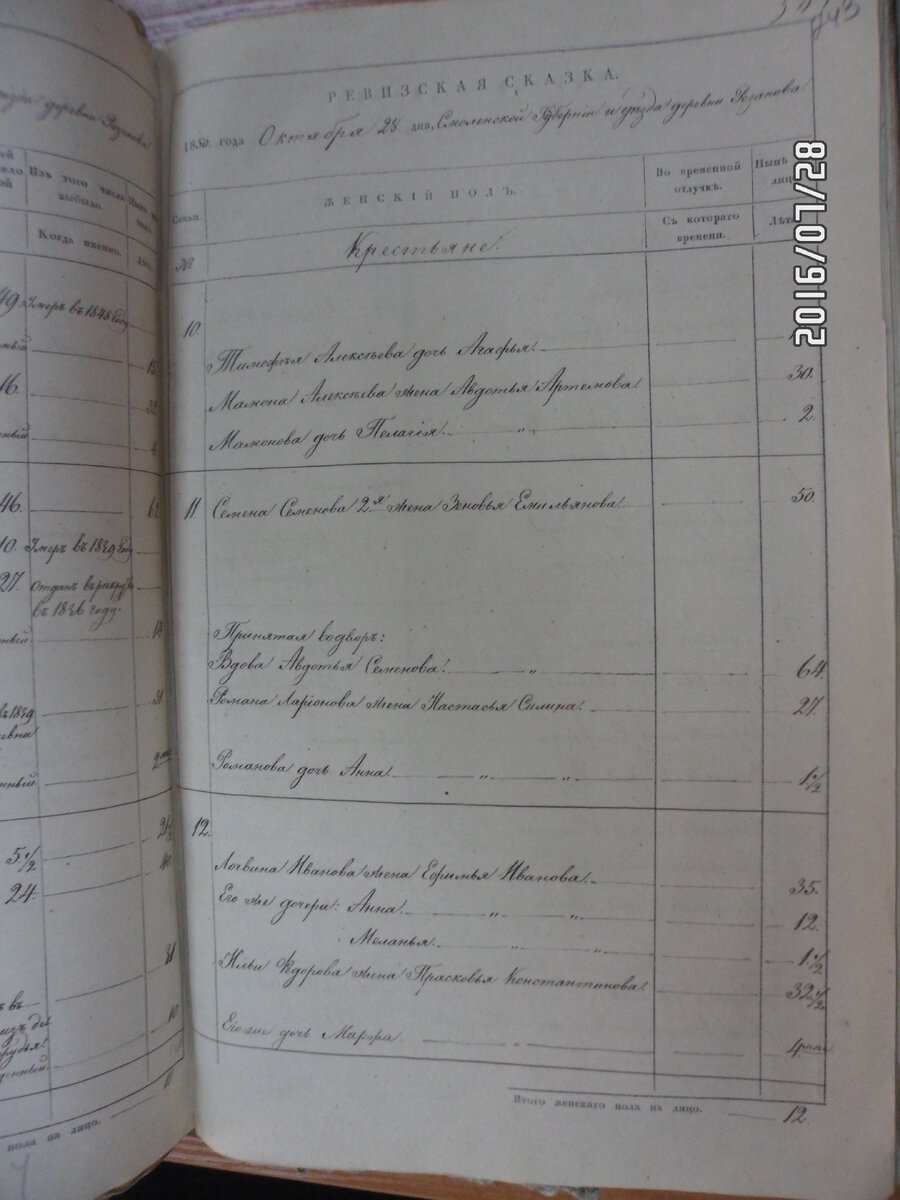 243
РЕВИЗСКАЯ СКАЗКА.
1850. года Октября 28. дня, Смоленской Губерніи и уѣзда деревни Розанова
Семьи. ЖЕНСКІЙ ПОЛЪ. Во временной отлучкѣ. Нынѣ на лицо.
№ Крестьяне. Съ котораго времени. Лѣта.
10.
Тимофѣя Алексѣева дочь Агафья.
Мамона Алексѣева жена Авдотья Артемова 30.
Мамонова дочь Пелагія. „ 2.
11 Семена Семенова 2я жена Зеновья Емильянова. 50.
Принятая водворъ:
Вдова Авдотья Семенова. „ 64.
Романа Ларіонова жена Настасья Силина. 27.
Романова дочь Анна. „ „ 1.½
12.
Логвина Иванова жена Ефимья Иванова. 35.
Его же дочери: Анна. „ „ 12.
Меланья. „ „ 1.½
Ильи Ѳедорова жена Прасковья Константинова. 32½
Его же дочь Марфа. „ 4 мѣс.
Итого женскаго пола на лицо. 12.
деревни Розанова
Изъ того числа выбыло.
Когда именно. Лѣта.
49. Умеръ въ 1848 году
15
16. 32
4
46. 62
10. Умеръ въ 1839 году
27. Отданъ въ рекруты
въ 1836 году.
14
31
въ 1839
5.½
24.
31
10
11
пола на лицо.
2016/07/28